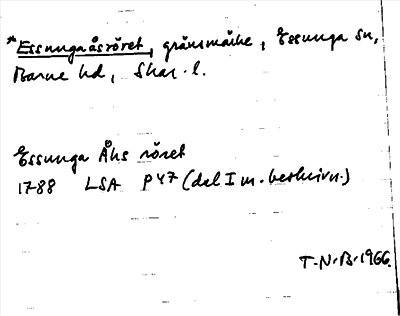 *Essungaåsröret, gränsmärke, Essunga sn,
Barne hd, Skar. l.
Essunga Åhs röret
1788 LSA P47 (del I m. beskrivn.)
T.N.B. 1966.